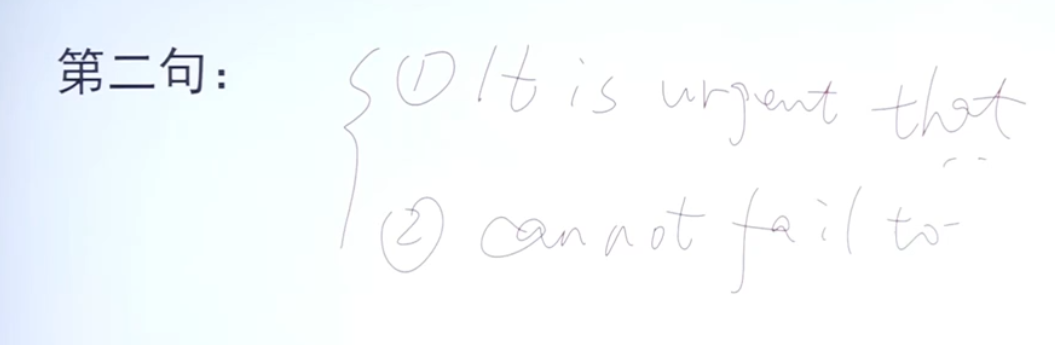 第二句： ① It is urgent that
② cannot fail to